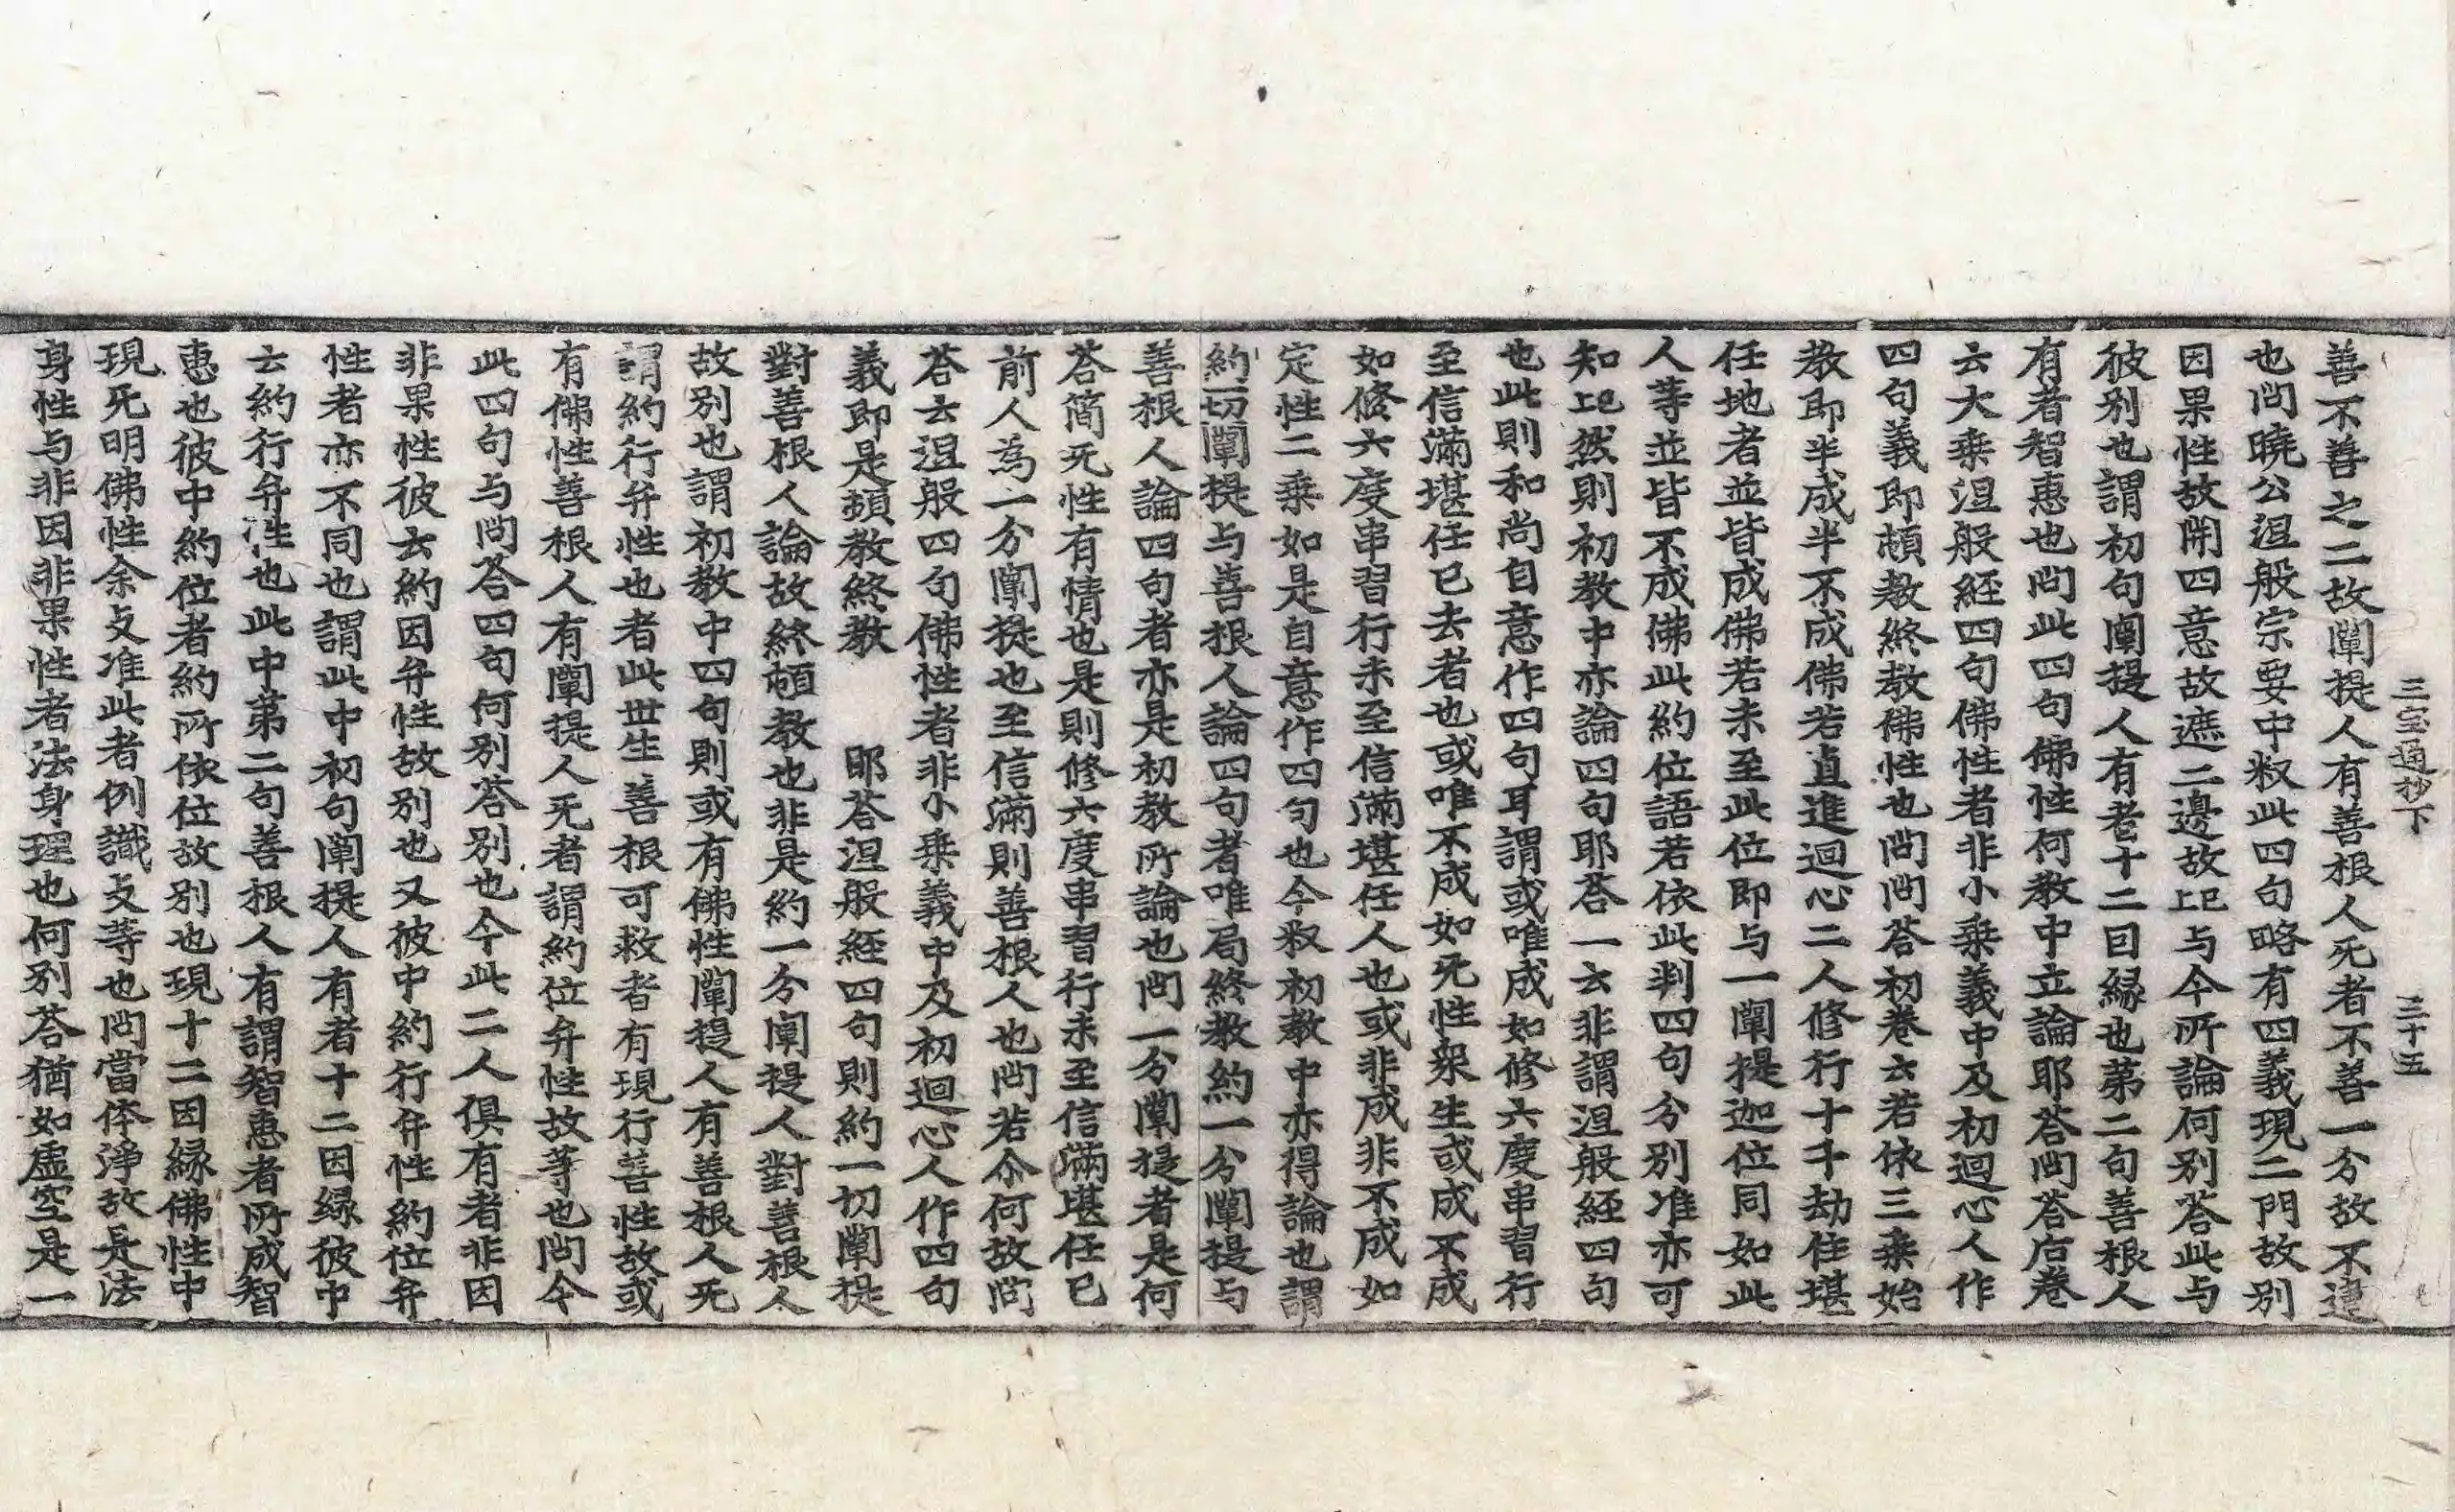 三宝通抄下　三十五
善不善之二故闡提人有善根人死者不善一分故不違
也问曉公涅般宗要中叔此四句略有四義現二門故別
因果性故開四意故遮二邊故此与今所論何別荅此与
彼別也謂初句闡提人有者十二因縁也第二句善根人
有者智惠也问此四句佛性何教中立論耶荅问荅后卷
云大乗涅般経四句佛性者非小乗義中及初迴心人作
四句義即頓教終教佛性也问问荅初卷云若依三乗始
教即半成半不成佛若直進迴心二人修行十千劫住堪
任地者並皆成佛若未至此位即与一闡提迦位同如此
人等並皆不成佛此約位語若依此判四句分別准亦可
知此然則初教中亦論四句耶荅一云非謂涅般経四句
也此則和尚自意作四句耳謂或唯成如修六度串習行
至信滿堪任已去者也或唯不成如死性衆生或成不成
如修六度串習行未至信滿堪任人也或非成非不成如
定性二乗如是自意作四句也今叔初教中亦得論也謂
約一切闡提与善根人論四句者唯局終教約一分闡提与
善根人論四句者亦是初教所論也问一分闡提者是何
荅簡死性有情也是則修六度串習行未至信滿堪任已
前人為一分闡提也至信滿則善根人也问若尒何故问
荅云涅般四句佛性者非小乗義中及初迴心人作四句
義即是頓教終教　耶荅涅般経四句則約一切闡提
對善根人論故終頓教也非是約一分闡提人對善根人
故別也謂初教中四句則或有佛性闡提人有善根人死
謂約行弁性也者此世生善根可救者有現行善性故或
有佛性善根人有闡提人死者謂約位弁性故等也问今
此四句与问荅四句何別荅別也今此二人俱有者非因
非果性彼云約因弁性故別也又彼中約行弁性約位弁
性者亦不同也謂此中初句闡提人有者十二因縁彼中
云約行弁性也此中第二句善根人有謂智惠者所成智
惠也彼中約位者約所依位故別也現十二因縁佛性中
現死明佛性余攴准此者例識攴等也问當体淨故是法
身性与非因非果性者法身理也何別荅猶如虛空是一